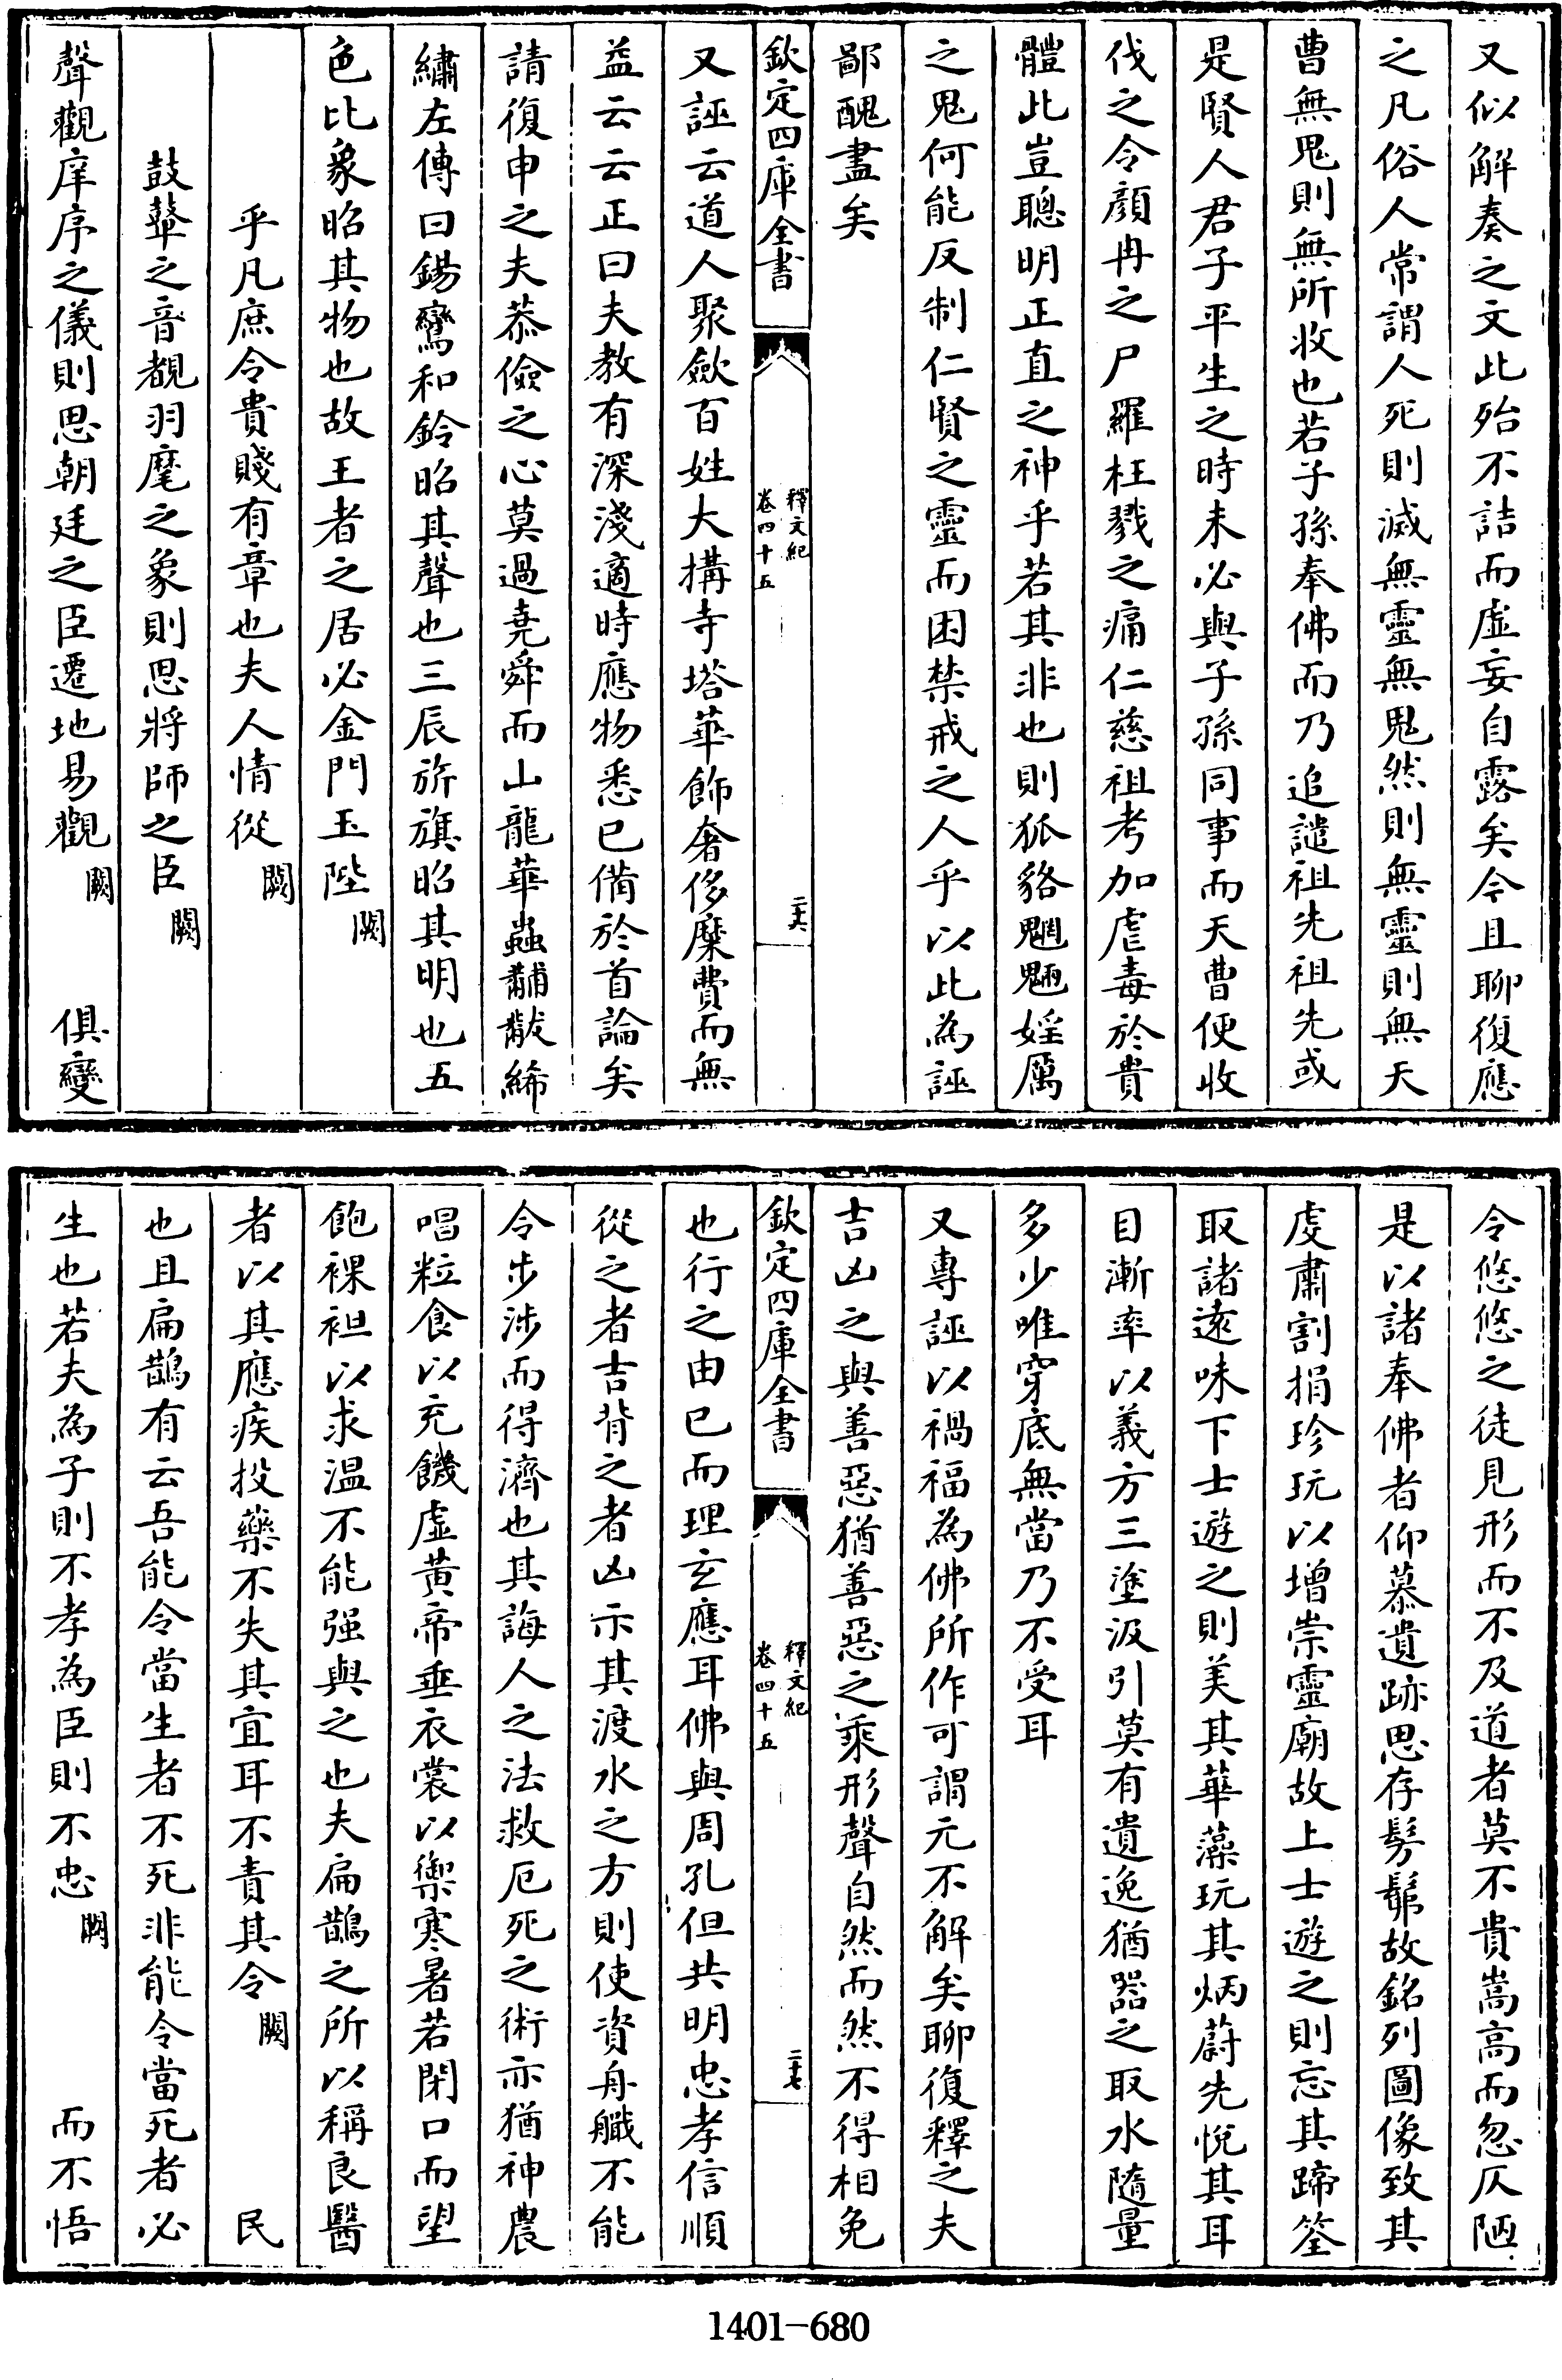 又似解奏之文此殆不詰而虛妄自露矣今且聊復應
之凡俗人常謂人死則滅無靈無鬼然則無靈則無天
曹無鬼則無所收也若子孫奉佛而乃追譴祖先祖先或
是賢人君子平生之時未必與子孫同事而天曹便收
伐之令顏冉之尸羅枉戮之痛仁慈祖考加虐毒於貴
體此豈聰明正直之神乎若其非也則狐貉魍魎婬厲
之鬼何能反制仁賢之靈而困禁戒之人乎以此為誣
鄙醜盡矣
欽定四庫全書
釋文紀
卷四十五
二十六
又誣云道人聚歛百姓大搆寺塔華飾奢侈糜費而無
益云云正曰夫教有深淺適時應物悉已備於首論矣
請復申之夫恭儉之心莫過堯舜而山龍華蟲黼黻絺
繡左傳曰鍚鸞和鈴昭其聲也三辰旂旗昭其明也五
色比象昭其物也故王者之居必金門玉陛闕
乎凡庶令貴賤有章也夫人情從闕
鼓鞞之音覩羽麾之象則思將師之臣闕
聲觀庠序之儀則思朝廷之臣遷地易觀闕　俱變
令悠悠之徒見形而不及道者莫不貴嵩高而忽仄陋
是以諸奉佛者仰慕遺跡思存髣髴故銘列圖像致其
虔肅割捐珍玩以增崇靈廟故上士遊之則忘其蹄筌
取諸遠味下士遊之則美其華藻玩其炳蔚先悅其耳
目漸率以義方三塗汲引莫有遺逸猶器之取水隨量
多少唯穿底無當乃不受耳
又專誣以禍福為佛所作可謂元不解矣聊復釋之夫
吉凶之與善惡猶善惡之乘形聲自然而然不得相免
欽定四庫全書
釋文紀
卷四十五
二十七
也行之由已而理玄應耳佛與周孔但共明忠孝信順
從之者吉背之者凶示其渡水之方則使資舟艥不能
令步涉而得濟也其誨人之法救厄死之術亦猶神農
唱粒食以充饑虛黃帝垂衣裳以禦寒暑若閉口而望
飽裸袒以求溫不能强與之也夫扁鵲之所以稱良醫
者以其應疾投藥不失其宜耳不責其令闕　民
也且扁鵲有云吾能令當生者不死非能令當死者必
生也若夫為子則不孝為臣則不忠闕　而不悟
1401-680